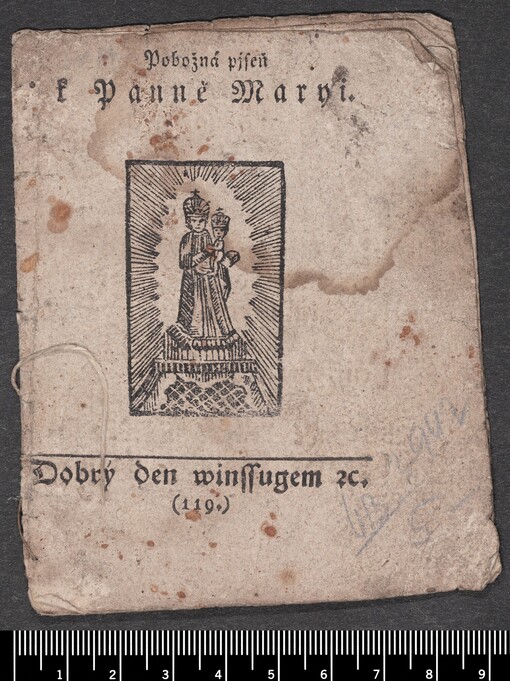 Pobožná pjseň
k Panně Maryi.
Dobrý den winssugem ꝛc.
(119.)
1 2 3 4 5 6 7 8 9